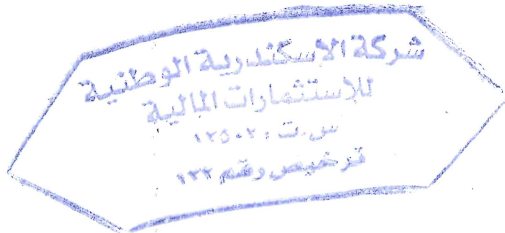 شركة الاسكندرية الوطنية
للاستثمارات المالية
س.ت: ١٢٥٠٢٠
ترخيص رقم ١٣٢